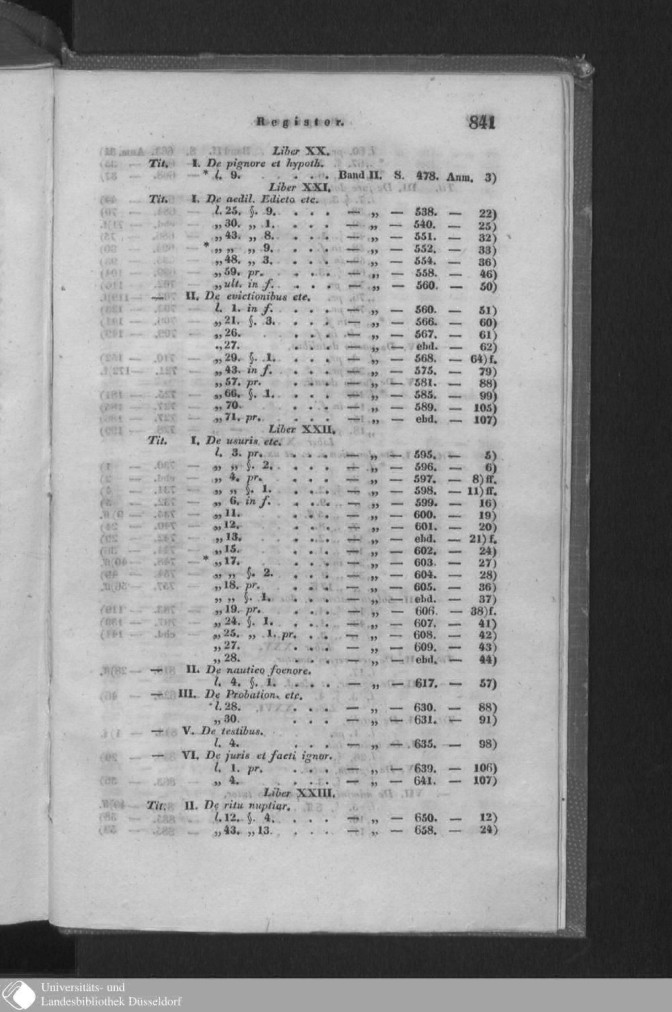 Register. 841
Liber XX.
Tit. I. De pignore et hypoth.
* l. 9. . . . . . Band II. S. 478. Anm. 3)
Liber XXI.
Tit. I. De aedil. Edicto etc.
l. 25. §. 9. . . . — „ — 538. — 22)
„ 30. „ 1. . . . — „ — 540. — 25)
„ 43. „ 8. . . . — „ — 551. — 32)
* „ „ „ 9. . . . — „ — 552. — 33)
„ 48. „ 3. . . . — „ — 554. — 36)
„ 59. pr. . . . — „ — 558. — 46)
„ ult. in f. . . . — „ — 560. — 50)
— II. De evictionibus etc.
l. 1. in f. . . . — „ — 560. — 51)
„ 21. §. 3. . . . — „ — 566. — 60)
„ 26. . . . — „ — 567. — 61)
„ 27. . . . — „ — ebd. — 62)
„ 29. §. 1. . . . — „ — 568. — 64) f.
„ 43. in f. . . . — „ — 575. — 79)
„ 57. pr. . . . — „ — 581. — 88)
„ 66. §. 1. . . . — „ — 585. — 99)
„ 70. . . . — „ — 589. — 105)
„ 71. pr. . . . — „ — ebd. — 107)
Liber XXII.
Tit. I. De usuris etc.
l. 3. pr. . . . — „ — 595. — 5)
„ „ §. 2. . . . — „ — 596. — 6)
„ 4. pr. . . . — „ — 597. — 8) ff.
„ „ §. 1. . . . — „ — 598. — 11) ff.
„ 6. in f. . . . — „ — 599. — 16)
„ 11. . . . — „ — 600. — 19)
„ 12. . . . — „ — 601. — 20)
„ 13. . . . — „ — ebd. — 21) f.
„ 15. . . . — „ — 602. — 24)
* „ 17. . . . — „ — 603. — 27)
„ „ §. 2. . . . — „ — 604. — 28)
„ 18. pr. . . . — „ — 605. — 36)
„ „ §. 1. . . . — „ — ebd. — 37)
„ 19. pr. . . . — „ — 606. — 38) f.
„ 24. §. 1. . . . — „ — 607. — 41)
„ 25. „ 1. pr. . . . — „ — 608. — 42)
„ 27. . . . — „ — 609. — 43)
„ 28. . . . — „ — ebd. — 44)
— II. De nautico foenore.
l. 4. §. 1. . . . — „ — 617. — 57)
— III. De Probation. etc.
* l. 28. . . . — „ — 630. — 88)
„ 30. . . . — „ — 631. — 91)
— V. De testibus.
l. 4. . . . — „ — 635. — 98)
— VI. De juris et facti ignor.
l. 1. pr. . . . — „ — 639. — 106)
„ 4. . . . — „ — 641. — 107)
Liber XXIII.
Tit. II. De ritu nuptiar.
l. 12. §. 4. . . . — „ — 650. — 12)
„ 43. „ 13. . . . — „ — 658. — 24)
Universitäts- und
Landesbibliothek Düsseldorf